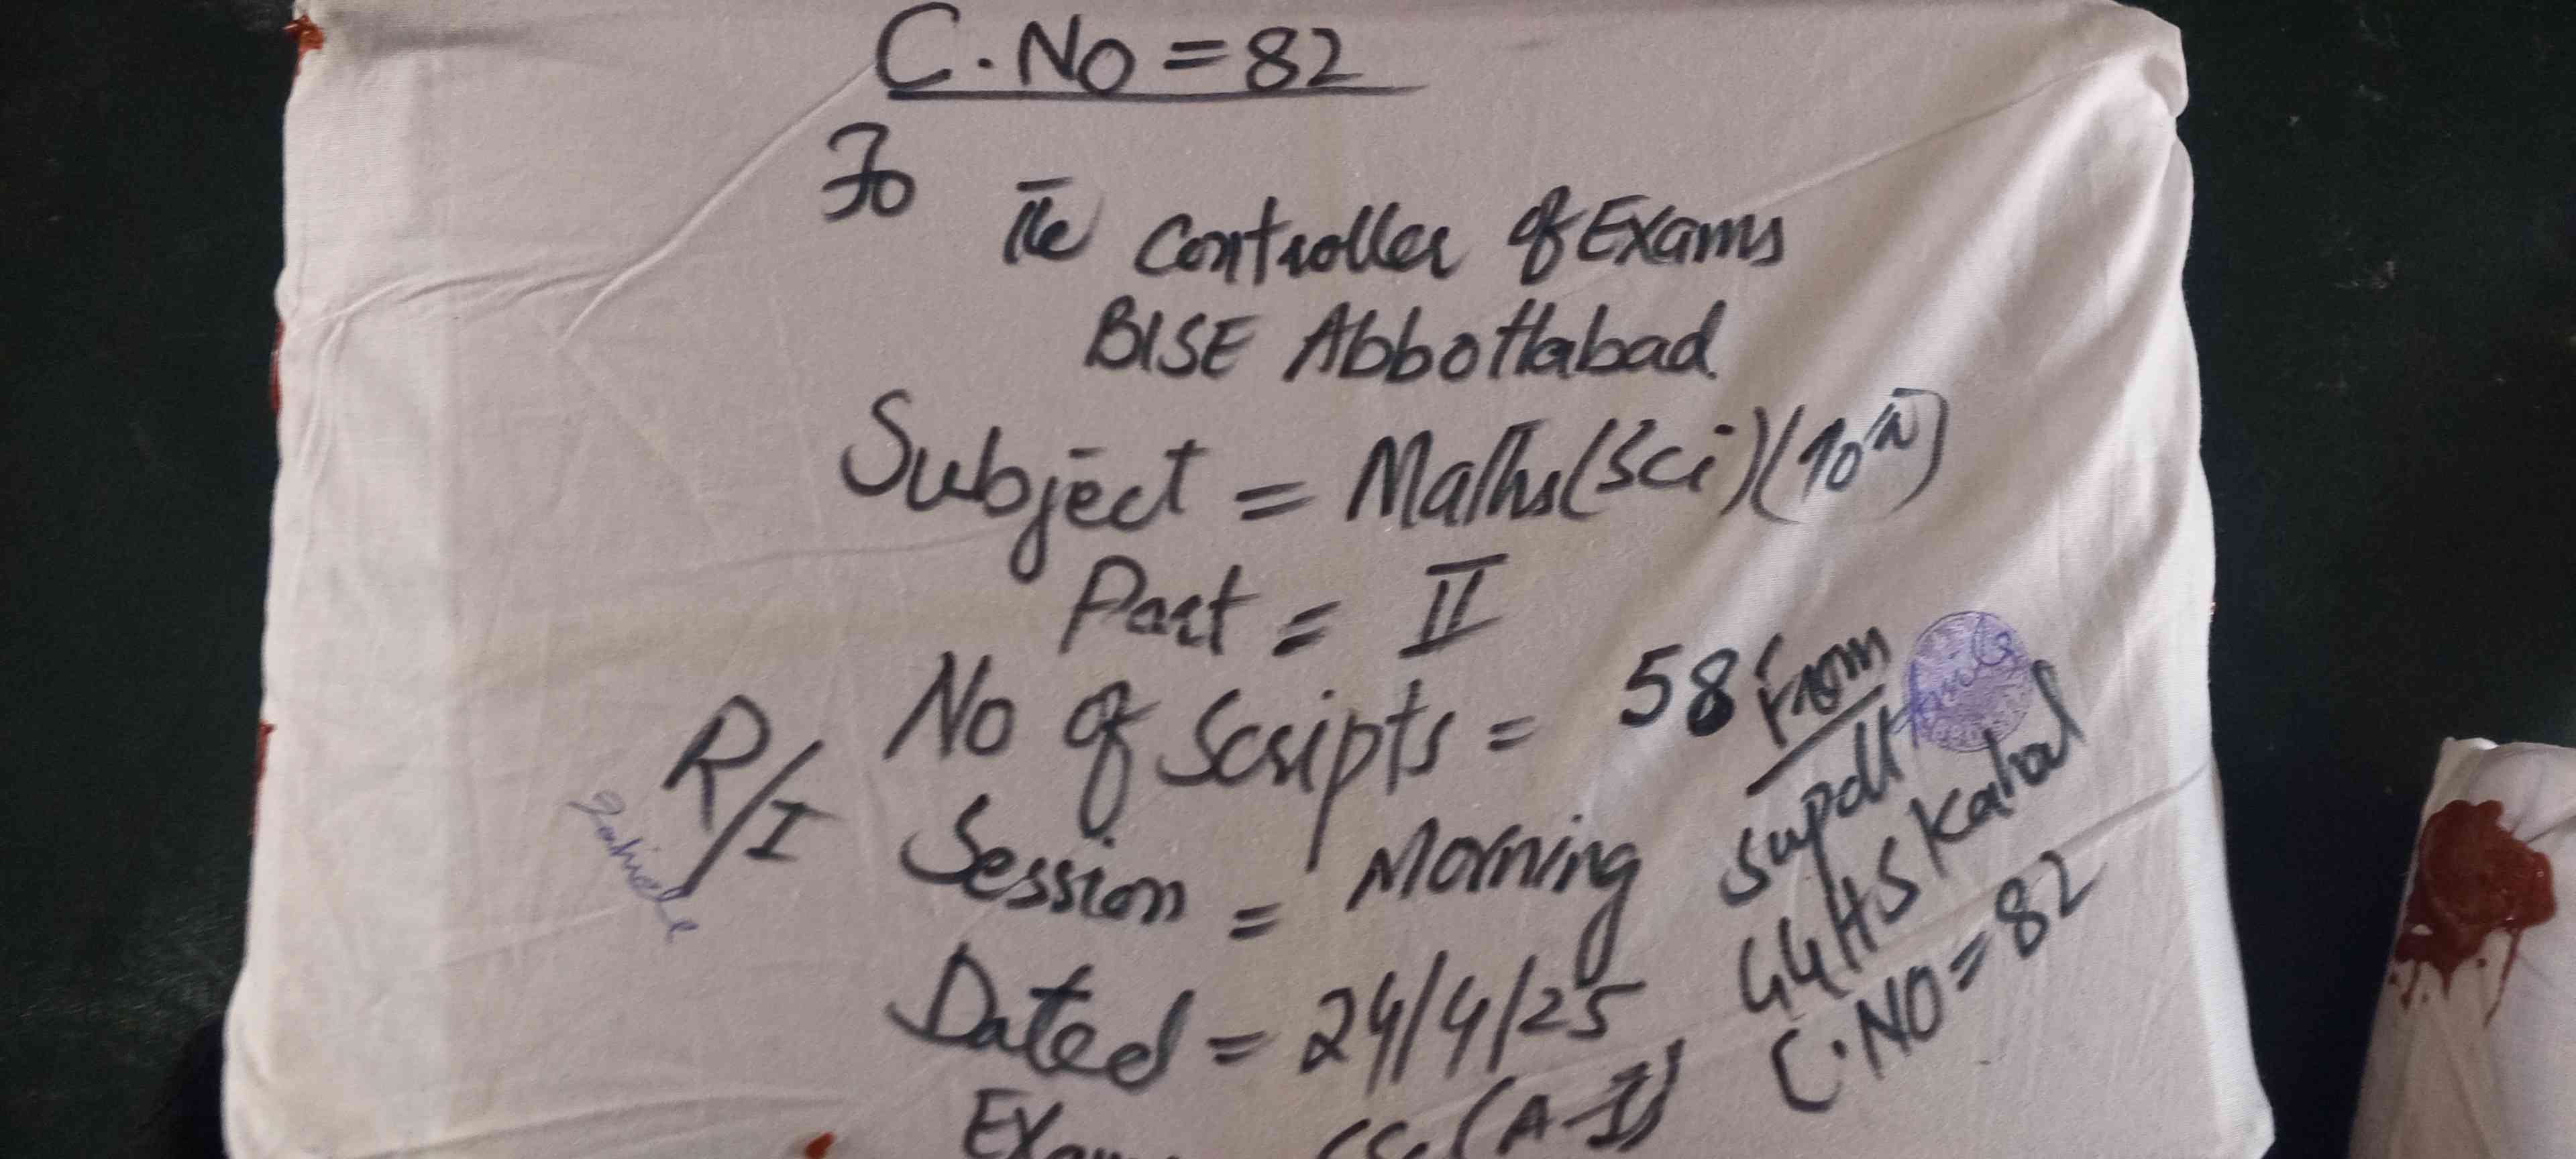 C.No = 82
To
The Controller of Exams
BISE Abbottabad
Subject = Maths (Sci) (10th)
Part = II
No of Scripts = 58
R/I
Session = Morning
Dated = 24/4/25
(A-I)
From
Supdtt
GGHS Kahal
C.NO = 82